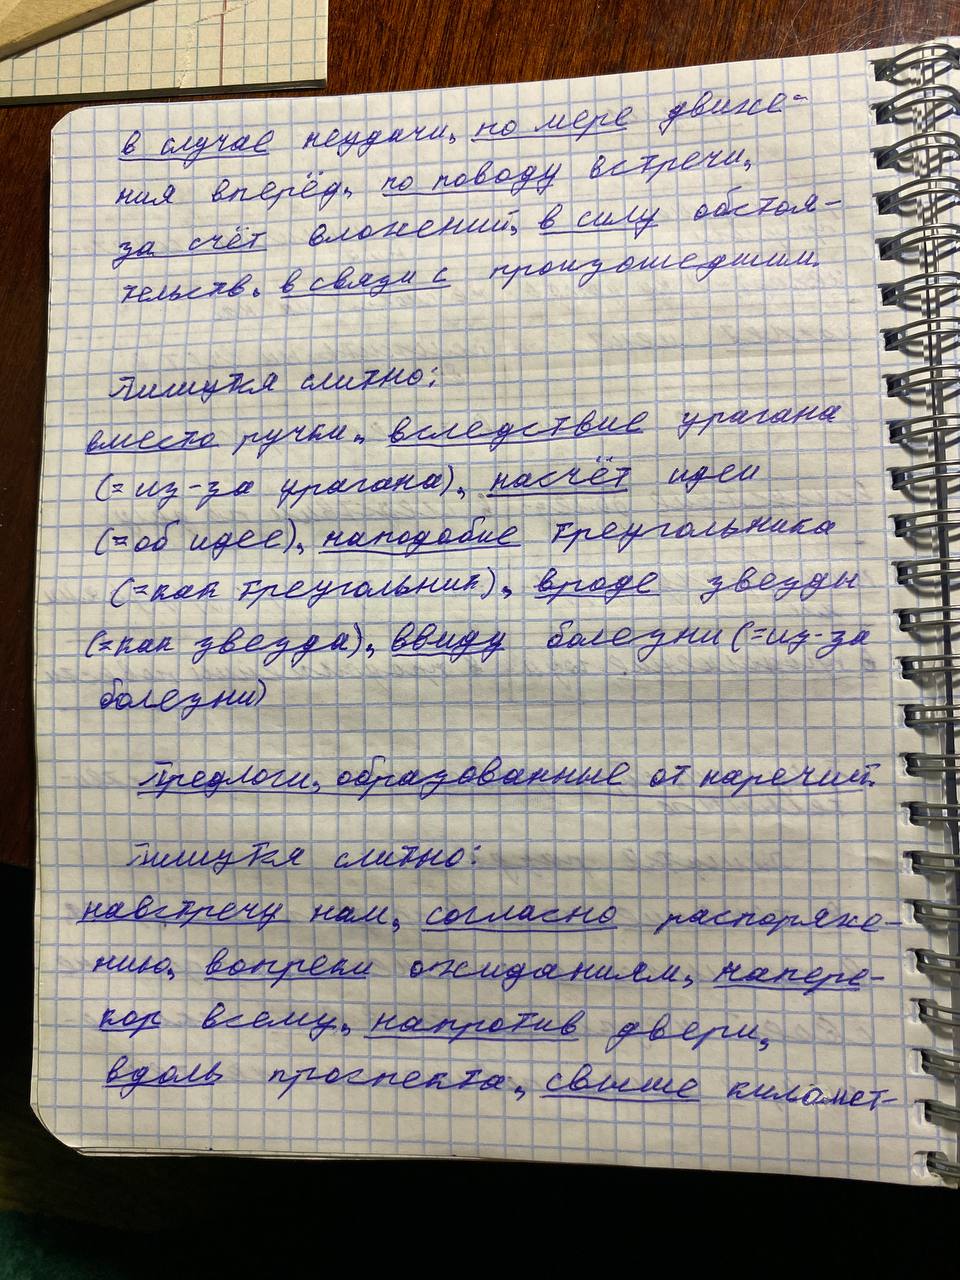 в случае неудачи, по мере движе-
ния вперёд, по поводу встречи,
за счёт вложений, в силу обстоя-
тельств, в связи с произошедшим.
Пишутся слитно:
вместо ручки, вследствие урагана
(=из-за урагана), насчёт идеи
(=об идее), наподобие треугольника
(=как треугольник), вроде звезды
(=как звезда), ввиду болезни (=из-за
болезни)
Предлоги, образованные от наречий.
Пишутся слитно:
навстречу нам, согласно распоряже-
нию, вопреки ожиданиям, напере-
кор всему, напротив двери,
вдоль проспекта, свыше километ-